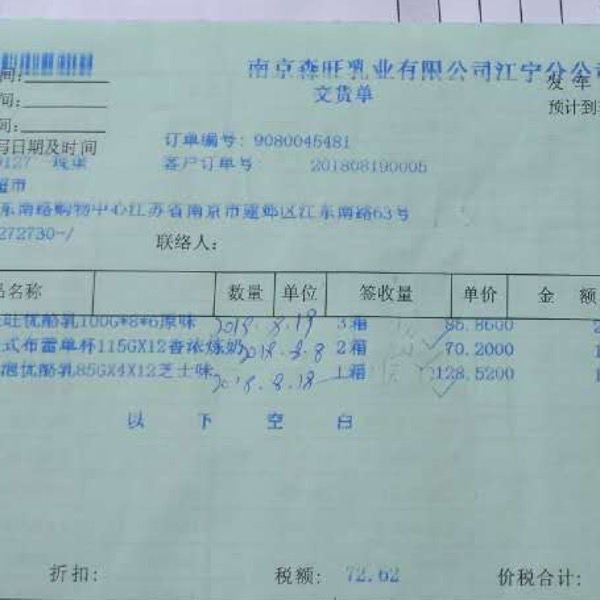 南京森旺乳业有限公司江宁分公司
间:
发车
交货单
间:
预计到
间:
写日期及时间
订单编号: 9080045481
客户订单号: 201808190005
超市
东南路购物中心江苏省南京市建邺区江东南路63号
272730-/
联络人:
品名称 数量 单位 签收量 单价 金 额
优酪乳100G*8*6原味 2018.8.19 3箱 86.8600 2
式布雷单杯115GX12香浓炼奶 2018.8.8 2箱 70.2000 1
泡优酪乳85GX4X12芝士味 2018.8.18 1箱 128.5200 1
以 下 空 白
折扣: 税额: 72.62 价税合计: